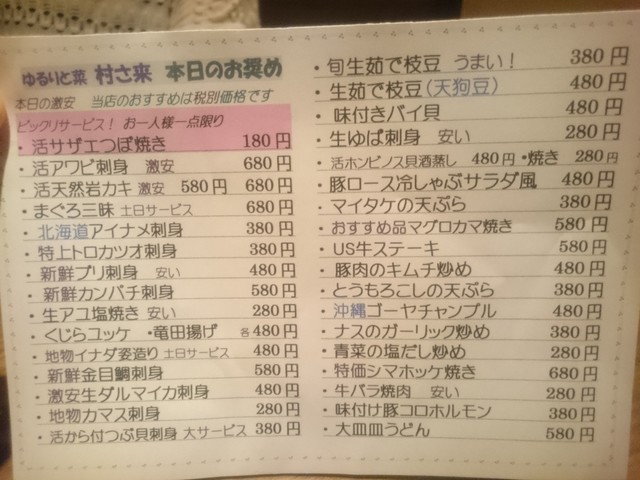 ゆるりと菜 村さ来 本日のお奨め
本日の激安 当店のおすすめは税別価格です
ビックリサービス! お一人様一点限り
・活サザエつぼ焼き 180円
・活アワビ刺身 激安 680円
・活天然岩カキ 激安 580円 680円
・まぐろ三昧 土日サービス 680円
・北海道アイナメ刺身 380円
・特上トロカツオ刺身 380円
・新鮮ブリ刺身 安い 480円
・新鮮カンパチ刺身 580円
・生アユ塩焼き 安い 280円
・くじらユッケ ・竜田揚げ 各480円
・地物イナダ姿造り 土日サービス 480円
・新鮮金目鯛刺身 580円
・激安生ダルマイカ刺身 480円
・地物カマス刺身 280円
・活から付つぶ貝刺身 大サービス 380円
・旬生茹で枝豆 うまい! 380円
・生茹で枝豆(天狗豆) 480円
・味付きバイ貝 480円
・生ゆば刺身 安い 280円
・活ホンビノス貝酒蒸し 480円・焼き 280円
・豚ロース冷しゃぶサラダ風 480円
・マイタケの天ぷら 380円
・おすすめ品マグロカマ焼き 580円
・US牛ステーキ 580円
・豚肉のキムチ炒め 480円
・とうもろこしの天ぷら 380円
・沖縄ゴーヤチャンプル 480円
・ナスのガーリック炒め 380円
・青菜の塩だし炒め 280円
・特価シマホッケ焼き 680円
・牛バラ焼肉 安い 280円
・味付け豚コロホルモン 380円
・大皿皿うどん 580円